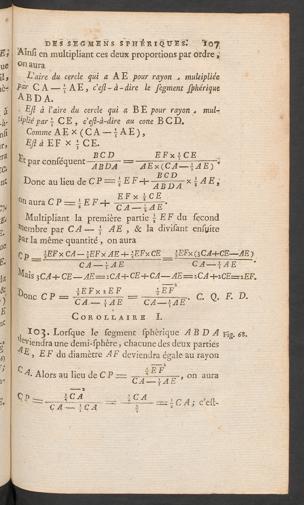 DES SEGMENS SPHÉRIQUES. 107
Ainsi en multipliant ces deux proportions par ordre,
on aura
L'aire du cercle qui a AE pour rayon, multipliée
par CA — ⅓ AE, c'est-à-dire le segment sphérique
ABDA.
Est à l'aire du cercle qui a BE pour rayon, mul-
tiplié par ⅓ CE, c'est-à-dire au cone BCD.
Comme AE × (CA — ⅓ AE),
Est à EF × ⅓ CE.
Et par conséquent BCD/ABDA = EF × ⅓ CE / AE × (CA — ⅓ AE).
Donc au lieu de CP = ½ EF + BCD/ABDA × ¼ AE,
on aura CP = ½ EF + EF × CE / CA — ⅓ AE.
Multipliant la première partie ½ EF du second
membre par CA — ⅓ AE, & la divisant ensuite
par la même quantité, on aura
Mais 3CA + CE — AE = 2CA + CE + CA — AE = 2CA + 2CE = 2EF.
Donc CP = EF × 2EF / CA — ⅓ AE = EF² / CA — ⅓ AE. C. Q. F. D.
COROLLAIRE I.
103. Lorsque le segment sphérique ABDA Fig. 68.
deviendra une demi-sphère, chacune des deux parties
AE, EF du diamètre AF deviendra égale au rayon
CA. Alors au lieu de CP = ¼ EF² / CA — ⅓ AE, on aura
CP = ¼ CA² / CA — ⅓ CA = ¼ CA / ⅔ = ⅜ CA; c'est-